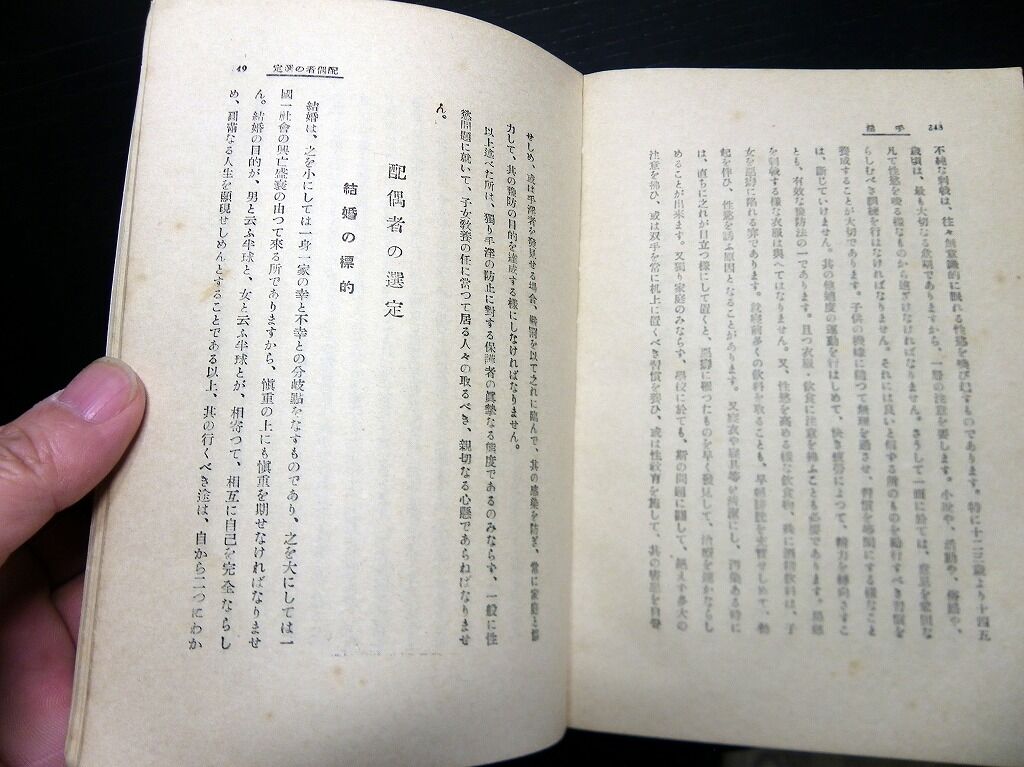 243
不純な刺戟は、往々無意識的に眠れる性慾を喚びむすものであります。特に十二三歳より十四五
歳頃は、最も大切なる危期でありますから、一層の注意を要します。小説や、活動や、俗謠や、
凡て性慾を唆る樣なものから遠ざけなければなりません。さうして一面に於ては、意志を
らしむべき訓練を行はなければなりません。それには良いと信ずる所のものを勵行すべき習慣を
養成することが大切であります。子供の機嫌に
は、斷じていけません。其の他適度の運動を行はしめて、快き疲勞によつて、精力を轉向さすこ
とも、有效な豫防法の一であります。且つ衣服・飮食に注意を拂ふことも必要であります。
を刺戟する樣な衣服は與へてはなりません。又、性慾を高める樣な飮食物、殊に酒精飮料は、子
女を惡癖に陷れる
起を伴ひ、性慾を誘ふ原因となることがあります。又寢衣や寢具等を淸潔にし、
は、直ちに之れが目立つ樣にして置くと、惡癖に罹つたものを早く發見して、治療を速かならし
めることが出來ます。又獨り家庭のみならず、學校に於ても、斯の問題に關して、絶えず多大の
注意を拂ひ、或は双手を常に机上に置くべき習慣を養ひ、或は性敎育を施して、其の害惡を自覺
配偶者の選定
49
せしめ、或は手淫者を發見せる場合、嚴密を以て之れに臨んで、其の感染を防ぎ、常に家庭と協
力して、其の豫防の目的を達成する樣にしなければなりません。
以上述べた所は、獨り手淫の防止に對する保護者の眞摯なる態度であるのみならず、一般に性
慾問題に就いて、子女敎養の任に當つて居る人々の取るべき、親切なる心懸であらねばなりませ
ん。
配偶者の選定
結婚の標的
結婚は、之を小にしては一身一家の幸と不幸との分岐點をなすものであり、之を大にしては一
國一社會の興亡盛衰の由つて來る所でありますから、愼重の上にも愼重を期せなければなりませ
ん。結婚の目的が、男と云ふ半球と、女と云ふ半球とが、相寄つて、相互に自己を完全ならし
め、圓滿なる人生を顯現せしめんとすることである以上、其の行くべき途は、自から二つにわか